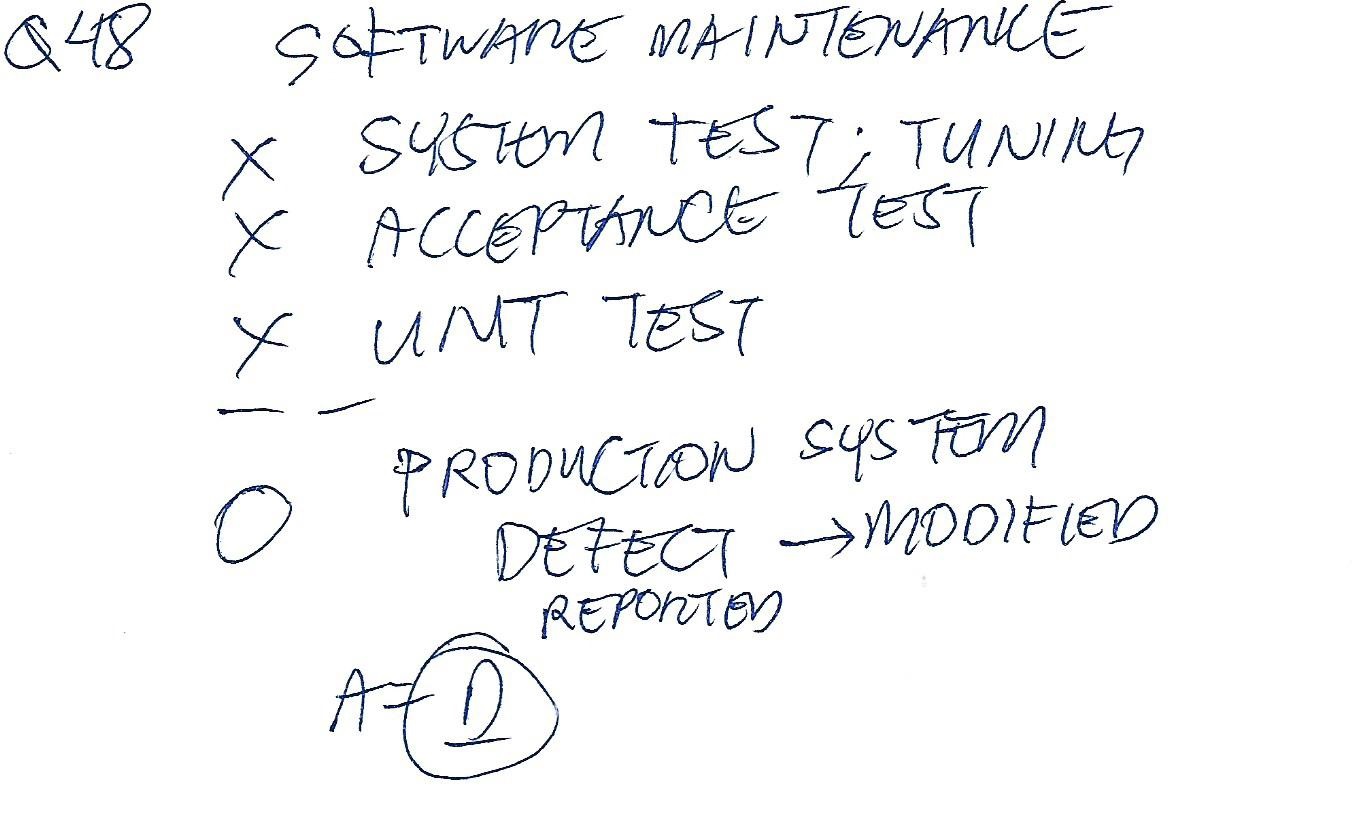 Q48 SOFTWARE MAINTENANCE
X SYSTEM TEST; TUNING
X ACCEPTANCE TEST
X UNIT TEST
— —
PRODUCTION SYSTEM
O DEFECT → MODIFIED
REPORTED
A = D